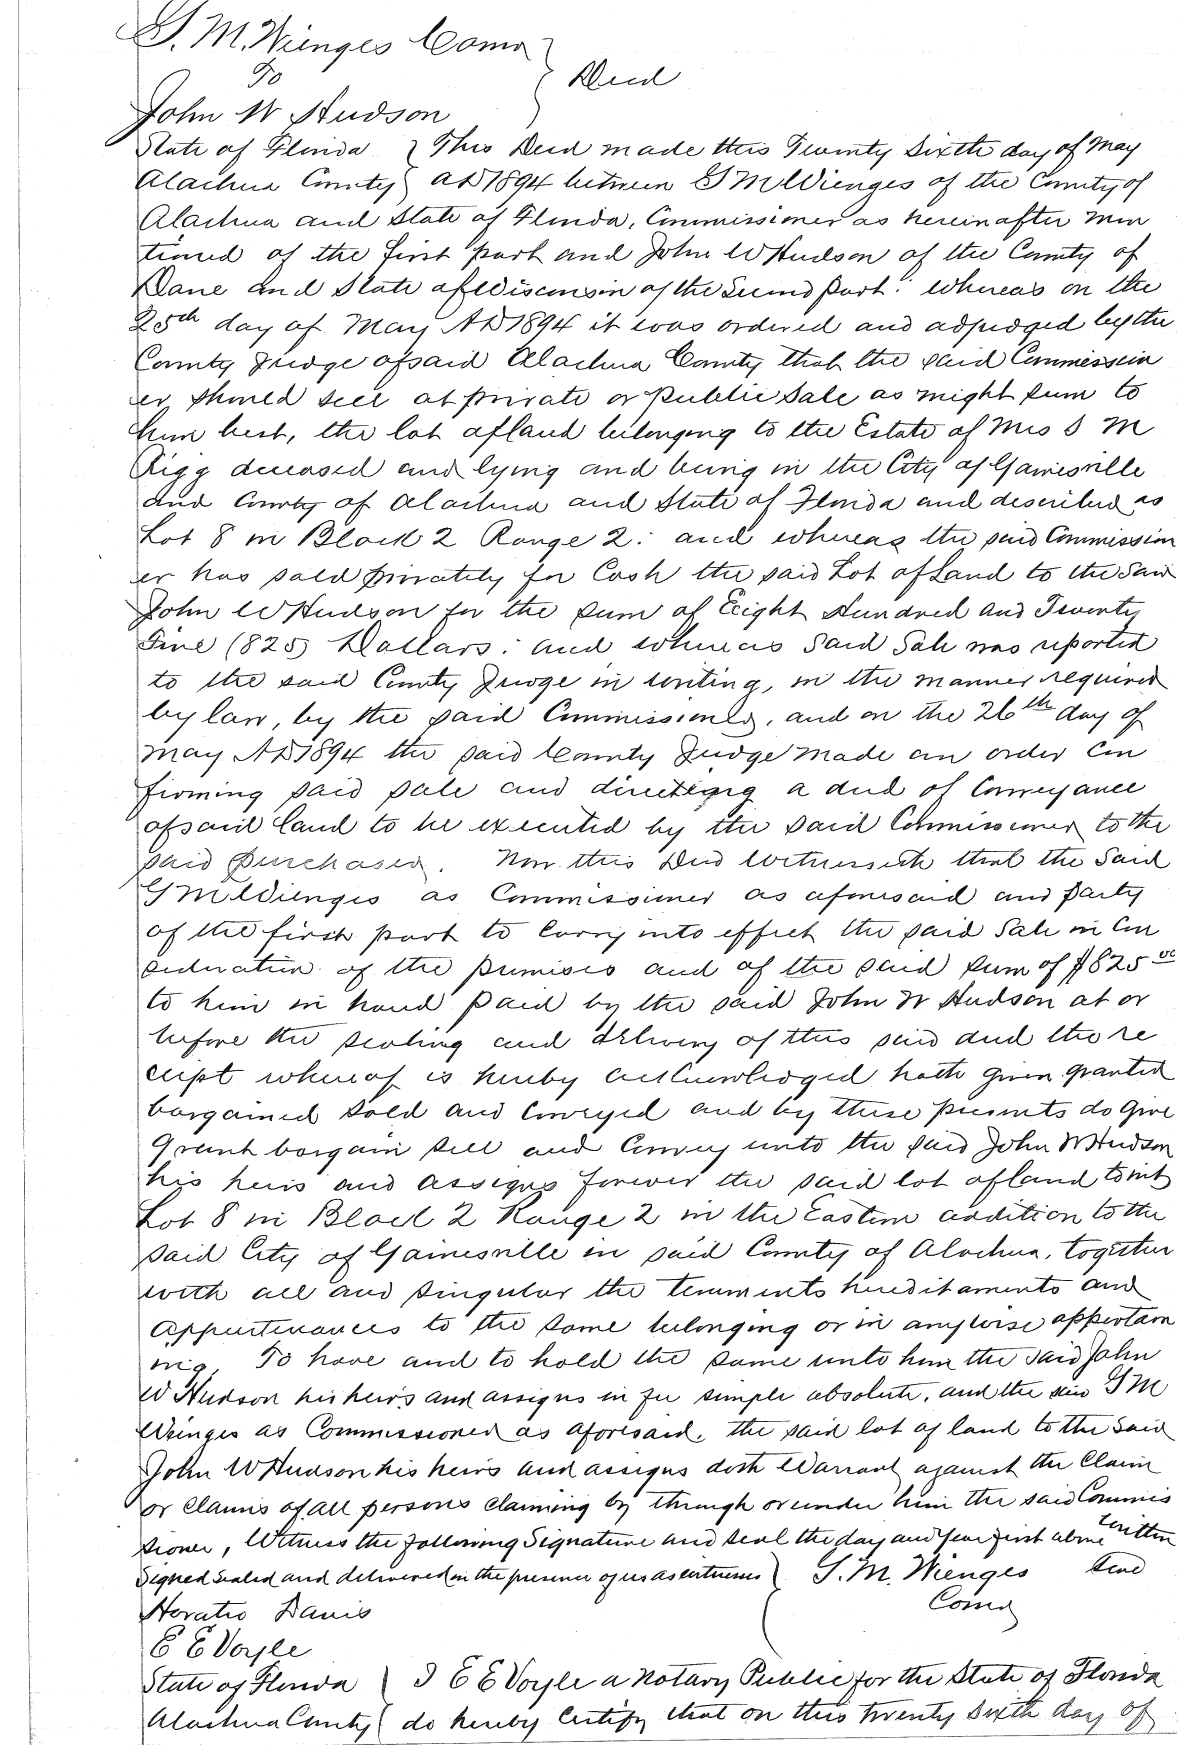 S. M. Wienges Comr
To } Deed
John W Hudson
State of Florida } This Deed made this Twenty Sixth day of May
Alachua County } AD 1894 between S M Wienges of the County of
Alachua and State of Florida, Commissioner as hereinafter men
tioned of the first part and John W Hudson of the County of
Dane and State of Wisconsin of the Second part: whereas on the
25th day of May AD 1894 it was ordered and adjudged by the
County Judge of said Alachua County that the said Commission
er should sell at private or public Sale as might seem to
him best, the lot of land belonging to the Estate of Mrs S M
Rigg deceased and lying and being in the City of Gainesville
and County of Alachua and State of Florida and described as
Lot 8 in Block 2 Range 2: and whereas the said Commission
er has sold privately for Cash the said Lot of Land to the Said
John W Hudson for the sum of Eight Hundred and Twenty
Five (825) Dollars: and whereas Said Sale was reported
to the said County Judge in writing, in the manner required
by law, by the said Commissioner, and on the 26th day of
May AD 1894 the said County Judge made an order Con
firming said sale and directing a deed of Conveyance
of said land to be executed by the said Commissioner to the
said purchaser. Now this Deed Witnesseth that the Said
S M Wienges as Commissioner as aforesaid and party
of the first part to Carry into effect the said Sale in Con
sideration of the premises and of the said sum of $825 00
to him in hand paid by the said John W Hudson at or
before the sealing and delivery of this said deed the re
ceipt whereof is hereby acknowledged hath given granted
bargained sold and Conveyed and by these presents do Give
Grant bargain sell and Convey unto the said John W Hudson
his heirs and assigns forever the said lot of land to wit
Lot 8 in Block 2 Range 2 in the Eastern addition to the
said City of Gainesville in said County of Alachua, together
with all and singular the tenements hereditaments and
Appurtenances to the same belonging or in anywise appertain
ing, To have and to hold the same unto him the said John
W Hudson his heirs and assigns in fee simple absolute, and the said S M
Wienges as Commissioner as aforesaid, the said lot of land to the Said
John W Hudson his heirs and assigns doth Warrant against the Claim
or claims of all persons claiming by through or under him the said Commis
sioner, Witness the following Signature and seal the day and year first above written
Signed sealed and delivered in the presence of us as witnesses } S. M. Wienges Seal
Horatio Davis Comr
E E Voyle
State of Florida } I E E Voyle a Notary Public for the State of Florida
Alachua County } do hereby Certify that on this twenty sixth day of